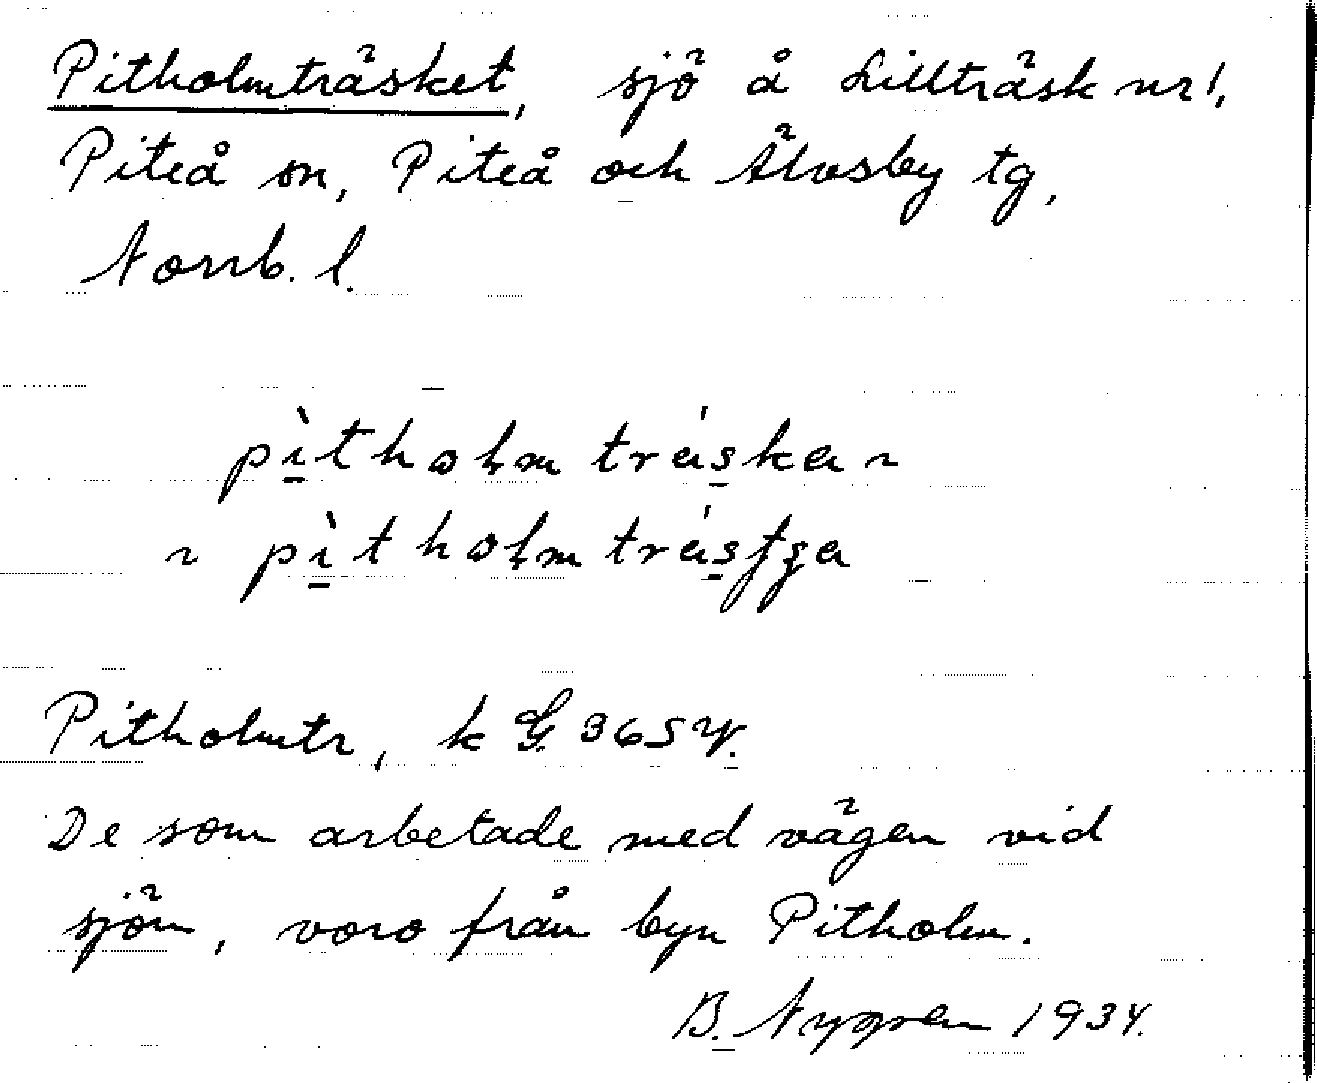 Pitholmträsket, sjö å Lillträsk nr 1,
Piteå sn, Piteå och Älvsby tg,
Norrb. l.
pìtholm tráska ~
~ pìtholm trásʃʒa
Pitholmtr, k G. 365 V.
De som arbetade med vägen vid
sjön, voro från byn Pitholm.
B. Nygren 1934.